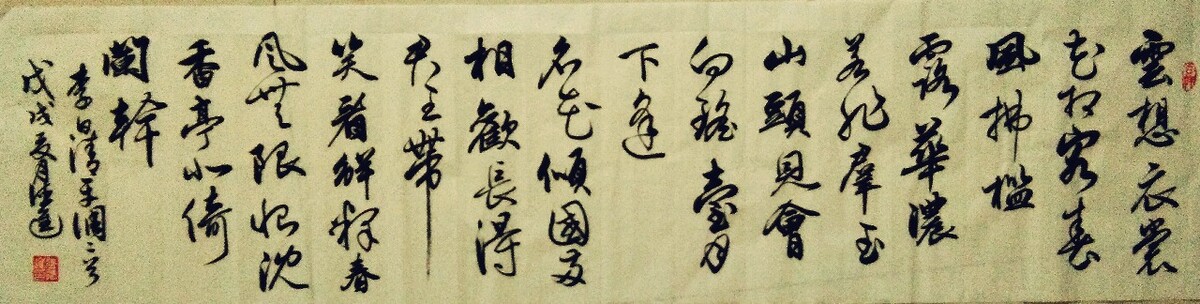 雲想衣裳
花想容春
風拂檻
露華濃
若非羣玉
山頭見會
向瑤臺月
下逢
名花傾國兩
相歡長得
君王帶
笑看解釋春
風無限恨沈
香亭北倚
闌幹
李白清平調二首
戊戌夏月